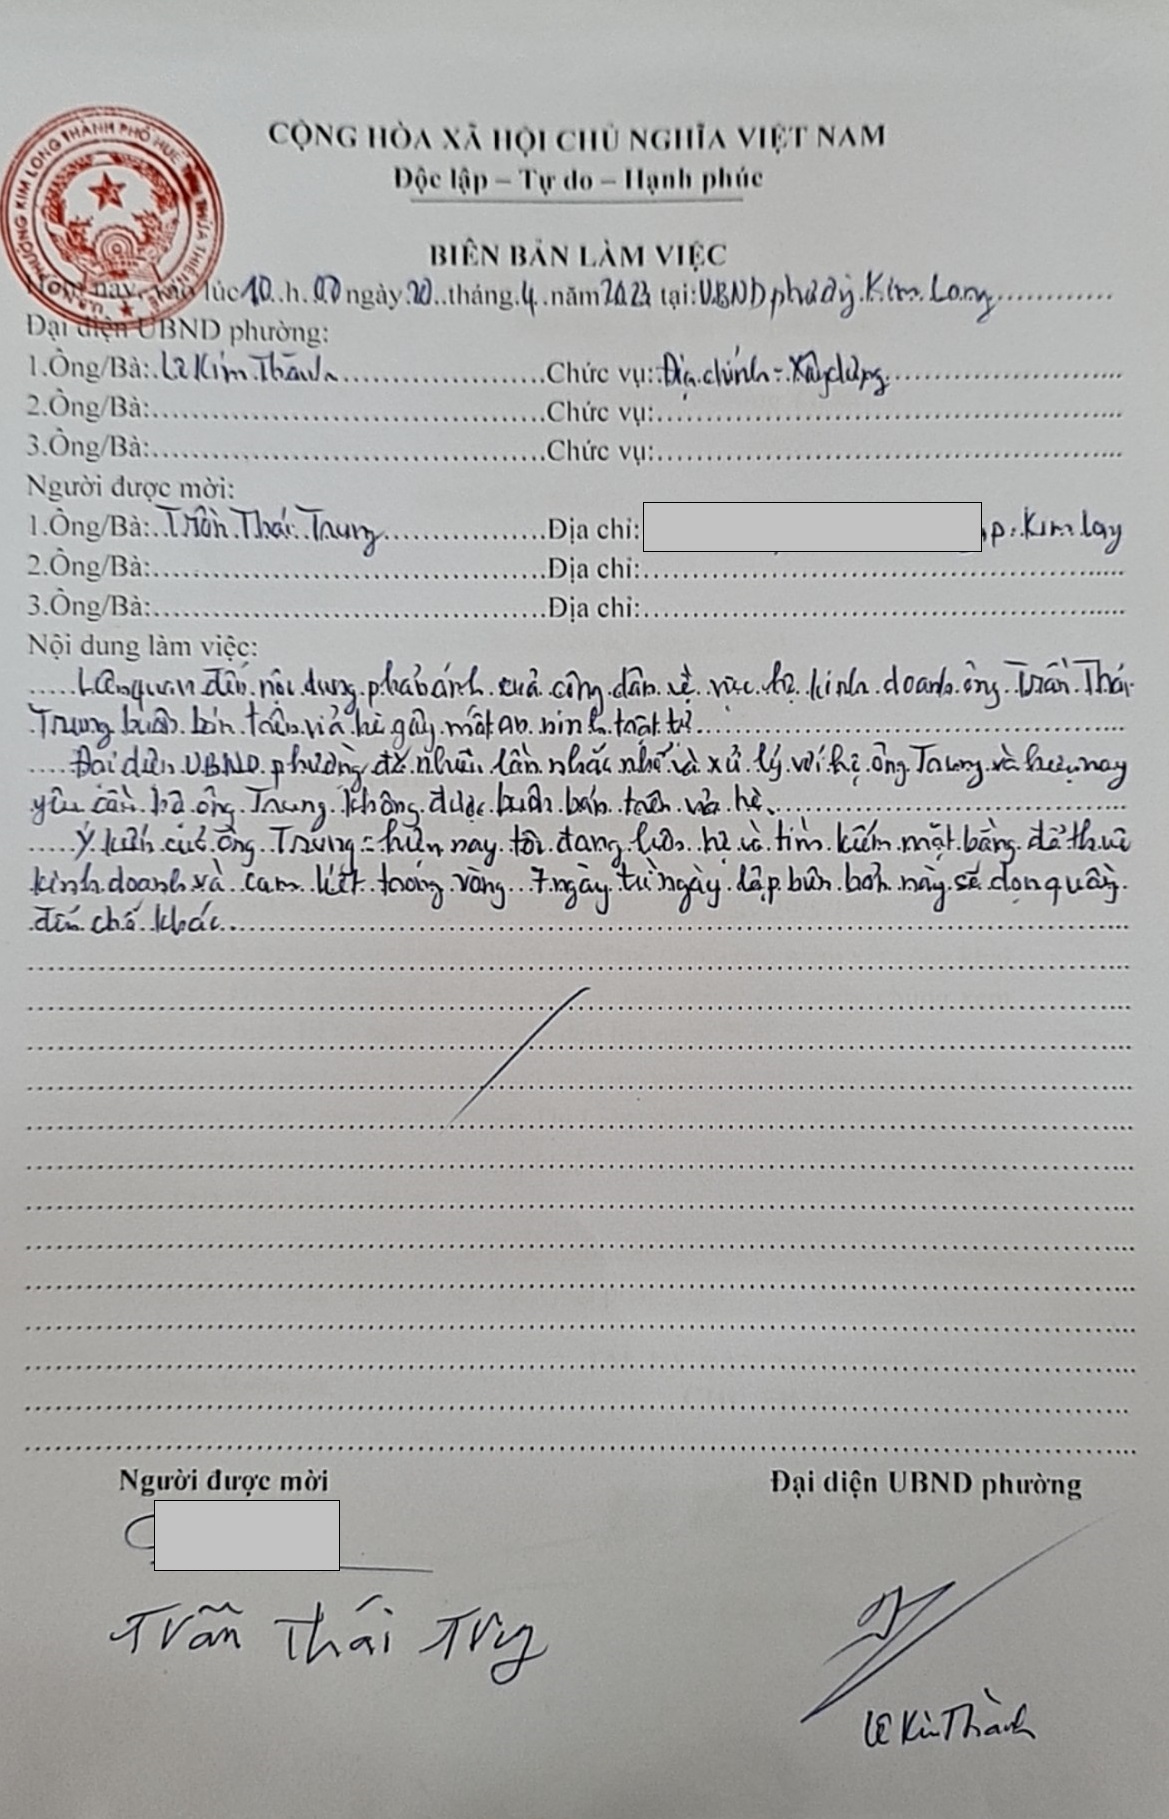 CỘNG HÒA XÃ HỘI CHỦ NGHĨA VIỆT NAM
Độc lập – Tự do – Hạnh phúc
BIÊN BẢN LÀM VIỆC
Hôm nay, vào lúc 10 h 00 ngày 20 tháng 4 năm 2023 tại: UBND phường Kim Long
Đại diện UBND phường:
1.Ông/Bà: Lê Kim Thành Chức vụ: Địa chính - Xây dựng
2.Ông/Bà: Chức vụ:
3.Ông/Bà: Chức vụ:
Người được mời:
1.Ông/Bà: Trần Thái Trung Địa chỉ: p. Kim Long
2.Ông/Bà: Địa chỉ:
3.Ông/Bà: Địa chỉ:
Nội dung làm việc:
Liên quan đến nội dung phản ánh của công dân về việc hộ kinh doanh ông Trần Thái
Trung buôn bán trên vỉa hè gây mất an ninh trật tự
Đại diện UBND phường đã nhiều lần nhắc nhở và xử lý với hộ ông Trung và hiện nay
yêu cầu hộ ông Trung không được buôn bán trên vỉa hè
Ý kiến của ông Trung: hiện nay tôi đang liên hệ và tìm kiếm mặt bằng để thuê
kinh doanh và cam kết trong vòng 7 ngày từ ngày lập biên bản này sẽ dọn quầy
đến chỗ khác
Người được mời Đại diện UBND phường
Trần Thái Trung
Lê Kim Thành